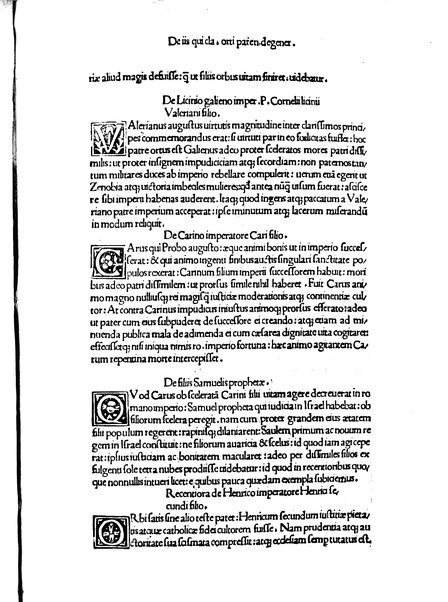 De iis qui cla. orti paren. degener.
riæ aliud magis defuisse: q̃ ut filiis orbus uitam finiret: uidebatur.
De Licinio galieno imper. P. Cornelii licinii
Valeriani filio.
VAlerianus augustus uirtutis magnitudine inter clarissimos princi
pes commemorandus erat: si uirtuti par in eo foelicitas fuisset: hoc
patre ortus est Galienus adeo proter sceleratos mores patri dissi
milis: ut proter insignem impudiciciam atq; secordiam: non paternos tan
tum militares duces ab imperio rebellare compulerit: uerum etiã egerit ut
Zenobia atq; uictoria imbecles mulieres: qđ antea nũq̃ uisum fuerat: ascisce
re sibi imperii habenas auderent. Itaq; quod ingens atq; paccatum a Vale
riano patre imperium acceperat: ipse iminutum atq; lacerum miserandũ
in modum reliquit.
De Carino imperatore Cari filio.
CArus qui Probo augusto: æque animi bonis ut in imperio succes
serat: & qui animo ingenti finibus austis singulari sanctitate po
pulos rexerat: Carinum filium imperii successorem habuit: mori
bus adeo patri dissimilem: ut prorsus simile nihil haberet. Fuit Carus ani
mo magno nulliusq; rei magisq̃ iusticiæ moderationis atq; continentiæ cul
tor: At contra Carinus impudicus iniustus animoq; prorsus efferato: adeo
ut pater cum eius subpuderet de successore ei creando: atq; etiam ad mi
nuenda publica mala de adimenda ei cum cesarea dignitate uita cogitaret:
effecissetq; nisi iniqua nimis ro. imperio fortuna: hæc animo agitantem Ca
rum repentina morte intercepisset.
De filiis Samuelis prophetæ.
QVod Carus ob scelerata Carini filii uitam agere decreuerat in ro
mano imperio: Samuel propheta qui iudicia in Israel habebat: ob
filiorum scelera peregit. nam cum proter grandem eius ætatem
filii populum regerent: rapinisq; dilaniarent: Saulem primum ac nouum re
gem in Israel constituit: ne filiorum auaricia & scelus: id quod iam agi cepe
rat: ipsius iusticiam ac bonitatem macularet: adeo per dissimiles filios ex
fulgenti sole terra nubes prodiisse uidebatur: id quod in recentioribus quo
que nonnullis intueri licet: e quibus pauca quædam exempla subiiciemus.
Recentiora de Henrico imperatore Henrici se
cundi filio.
ORbi satis sine alio teste patet: Henricum secundum iustitiæ pieta
tis atque catholicæ fidei cultorem fuisse. Nam prudentia atq; au
ctoritate sua scismata compressit: atq; ecclesiam semp tutatus est.